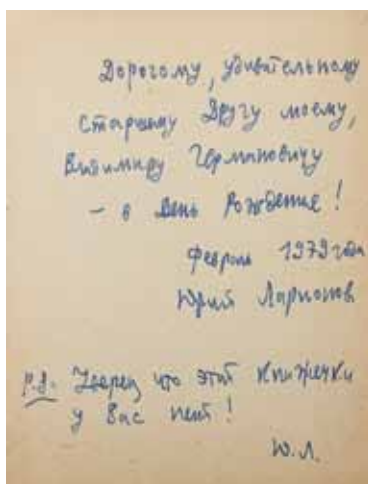 Дорогому, удивительному
старшему Другу моему,
Владимиру Германовичу
– в День Рождения!
Февраль 1979 года
Юрий Ларионов
P.S. Уверен что этой книжечки
у Вас нет!
Ю.Л.